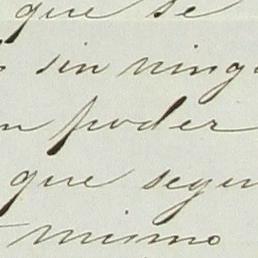 que se
sin ning
poder
que segu
mismo